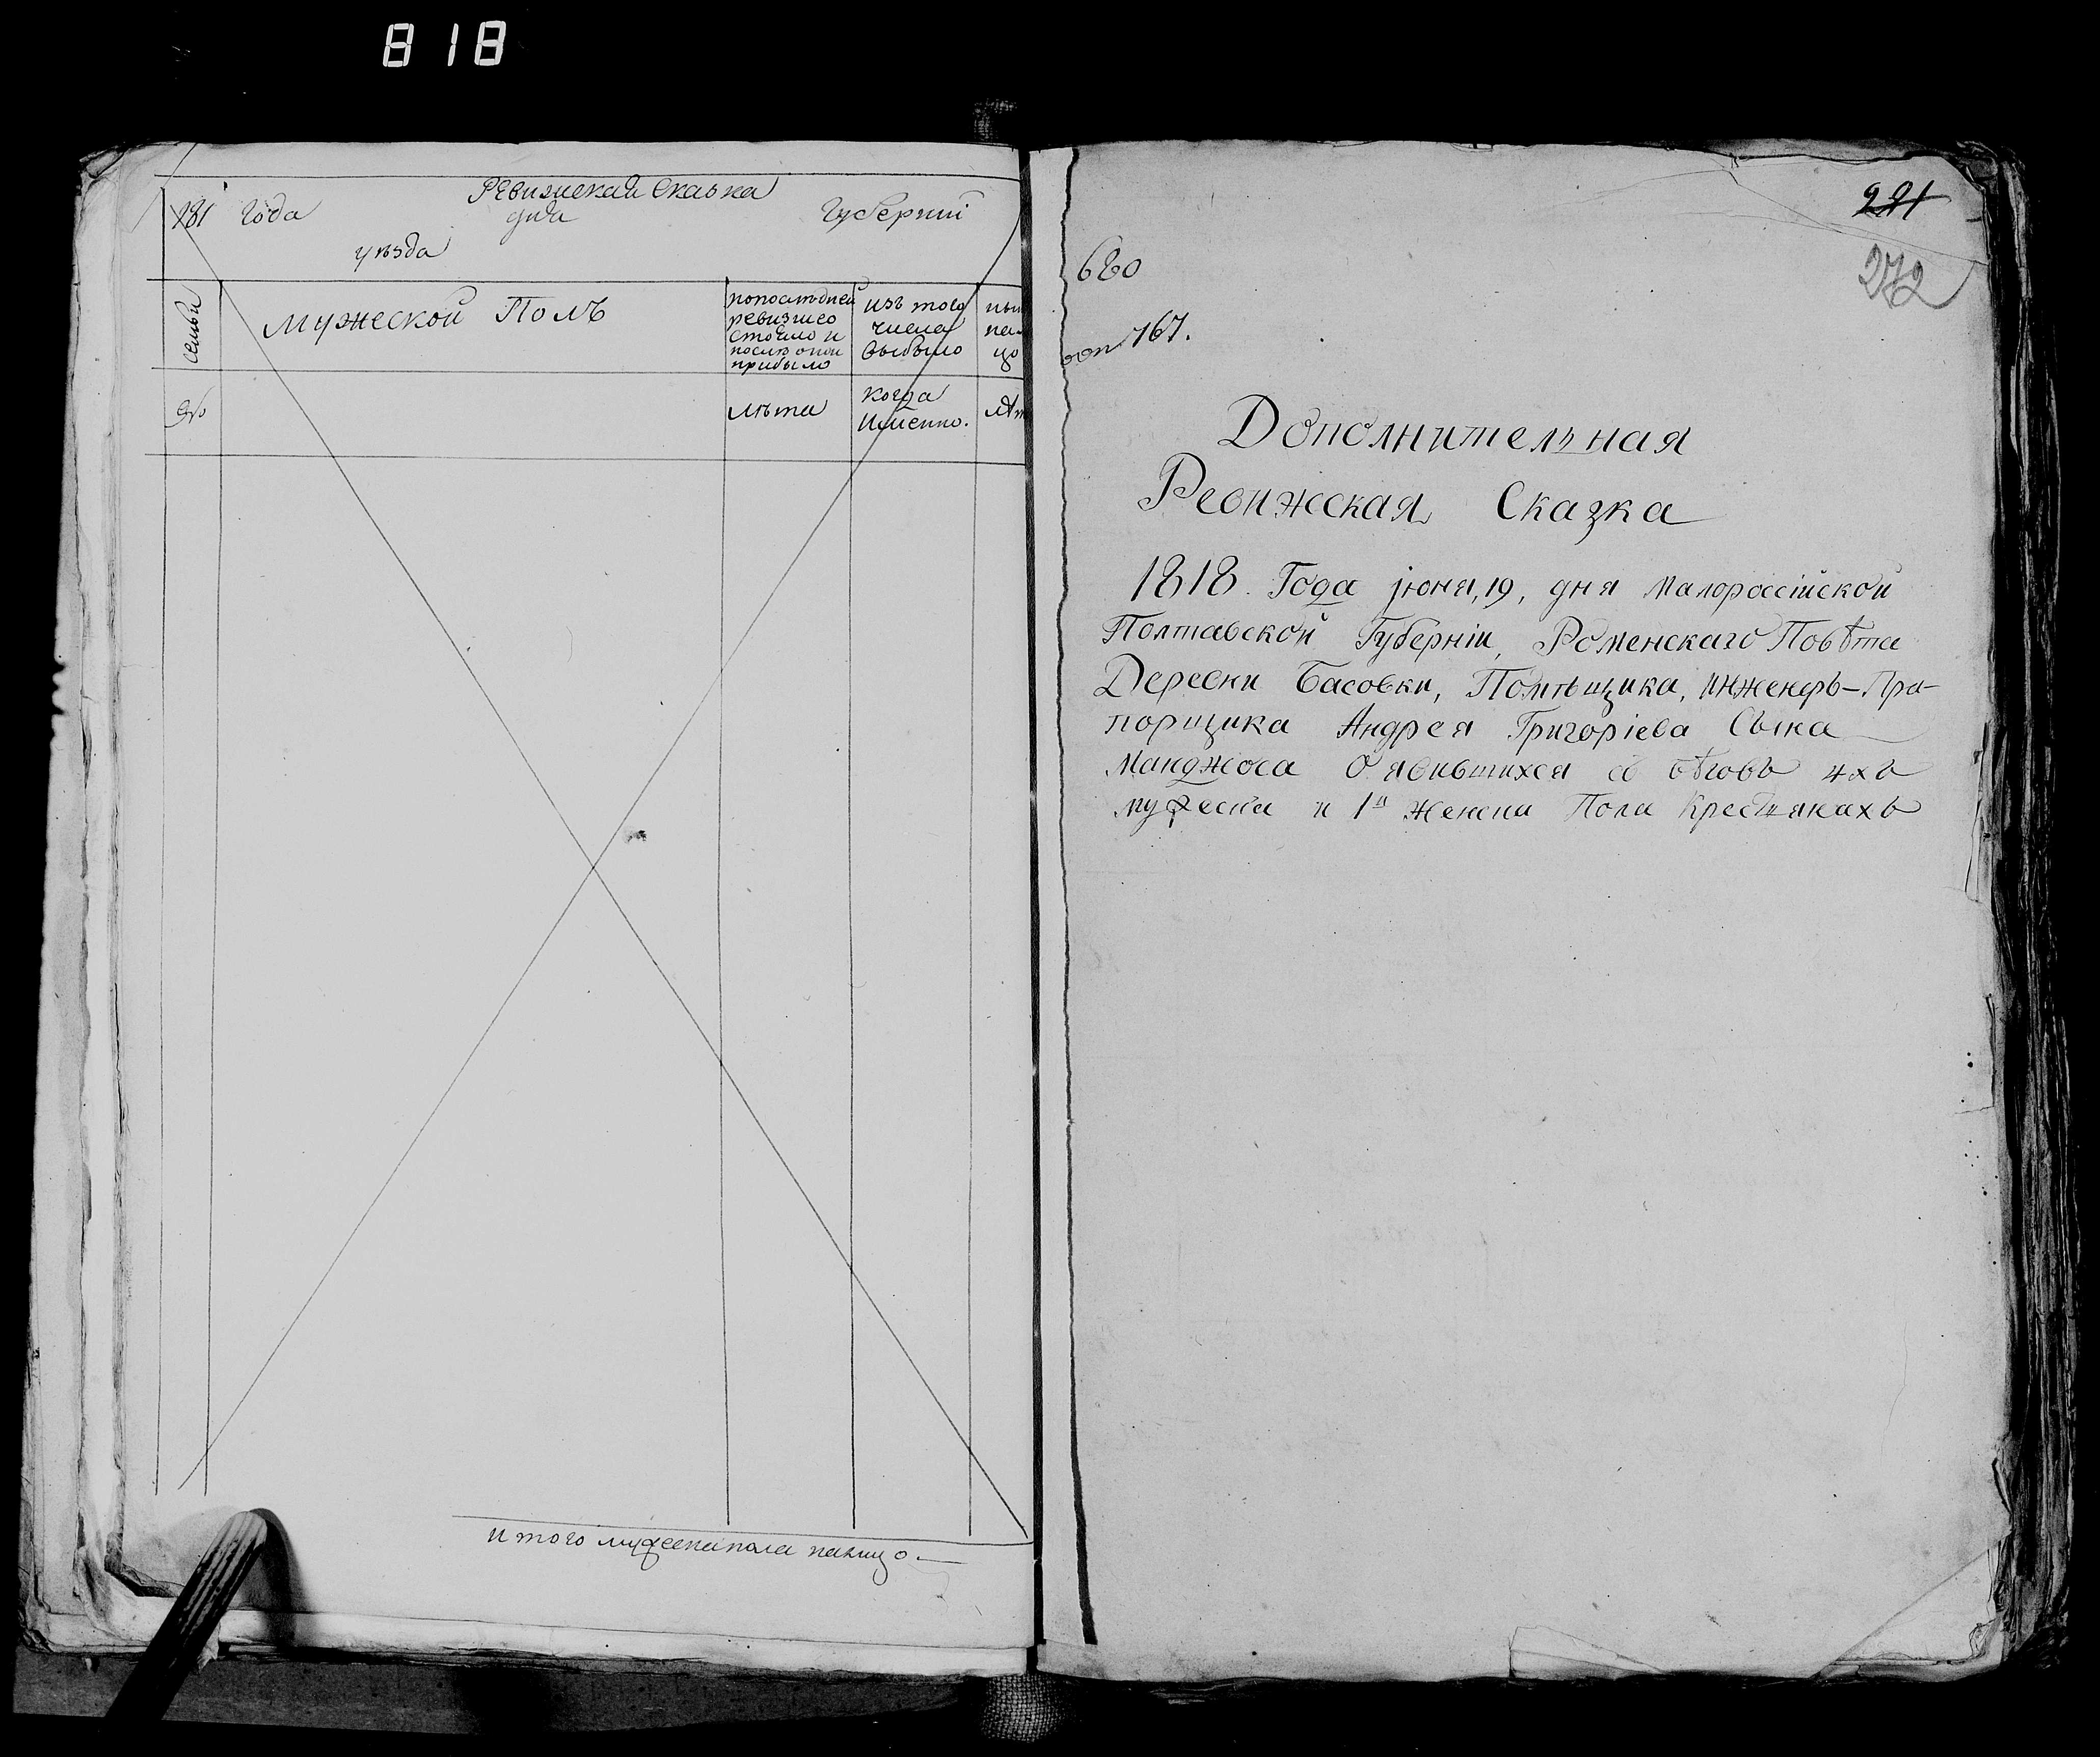 818
Ревизская Сказка
181 года дня Губерний
уѣзда
семьи
Мужеской Полъ
попослѣдней
ревизіи со
стояло и
послѣ оной
прибыло
изъ того
числа
выбыло
ны
на
цо
№
лѣта
когда
Именно.
Лѣт
итого мужеска пола налицо.
221
272
680
767.
Дополнительная
Ревижская Сказка
1818. Года іюня, 19, дня Малороссійской
Полтавской Губерніи, Роменскаго Повѣта
Деревни Басовки, Помѣщика, инженеръ-Пра-
порщика Андрея Григоріева Сына
Манджоса О явившихся съ бѣговъ 4хъ
мужеска и 1й женска Пола крестьянахъ